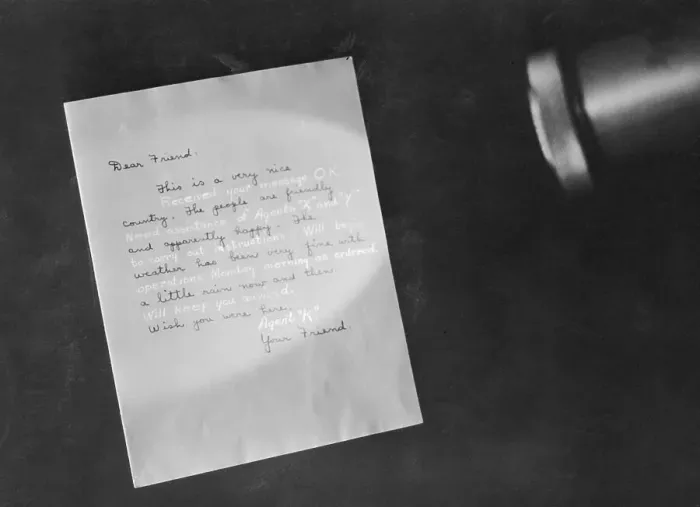 Dear Friend:
This is a very nice
Received your message OK
country. The people are friendly
Need assistance of Agents "X" and "Y"
and apparently happy. The
to carry out instructions. Will begin
weather has been very fine with
operations Monday morning as ordered.
a little rain now and then.
Will keep you advised.
Wish you were here.
Agent "K"
Your Friend.